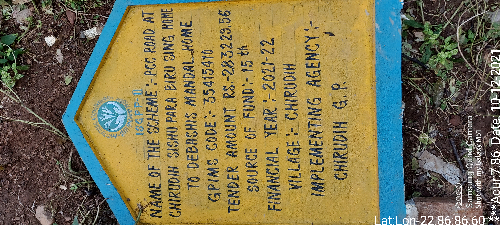 ISGPP-II
NAME OF THE SCHEME:- PCC ROAD AT
CHIRUDIH SISHU PARA BIRU BING HOME
TO DEBASHIS MANDAL HOME
GPIMS CODE:- 35415470
TENDER AMOUNT RS-283229.56
SOURCE OF FUND:- 15th
FINANCIAL YEAR:- 2021-22
VILLAGE:- CHIRUDIH
IMPLEMENTING AGENCY:-
CHIRUDIH G.P.
Samsung Quad Camera
Lat Lon-22.86,86.60